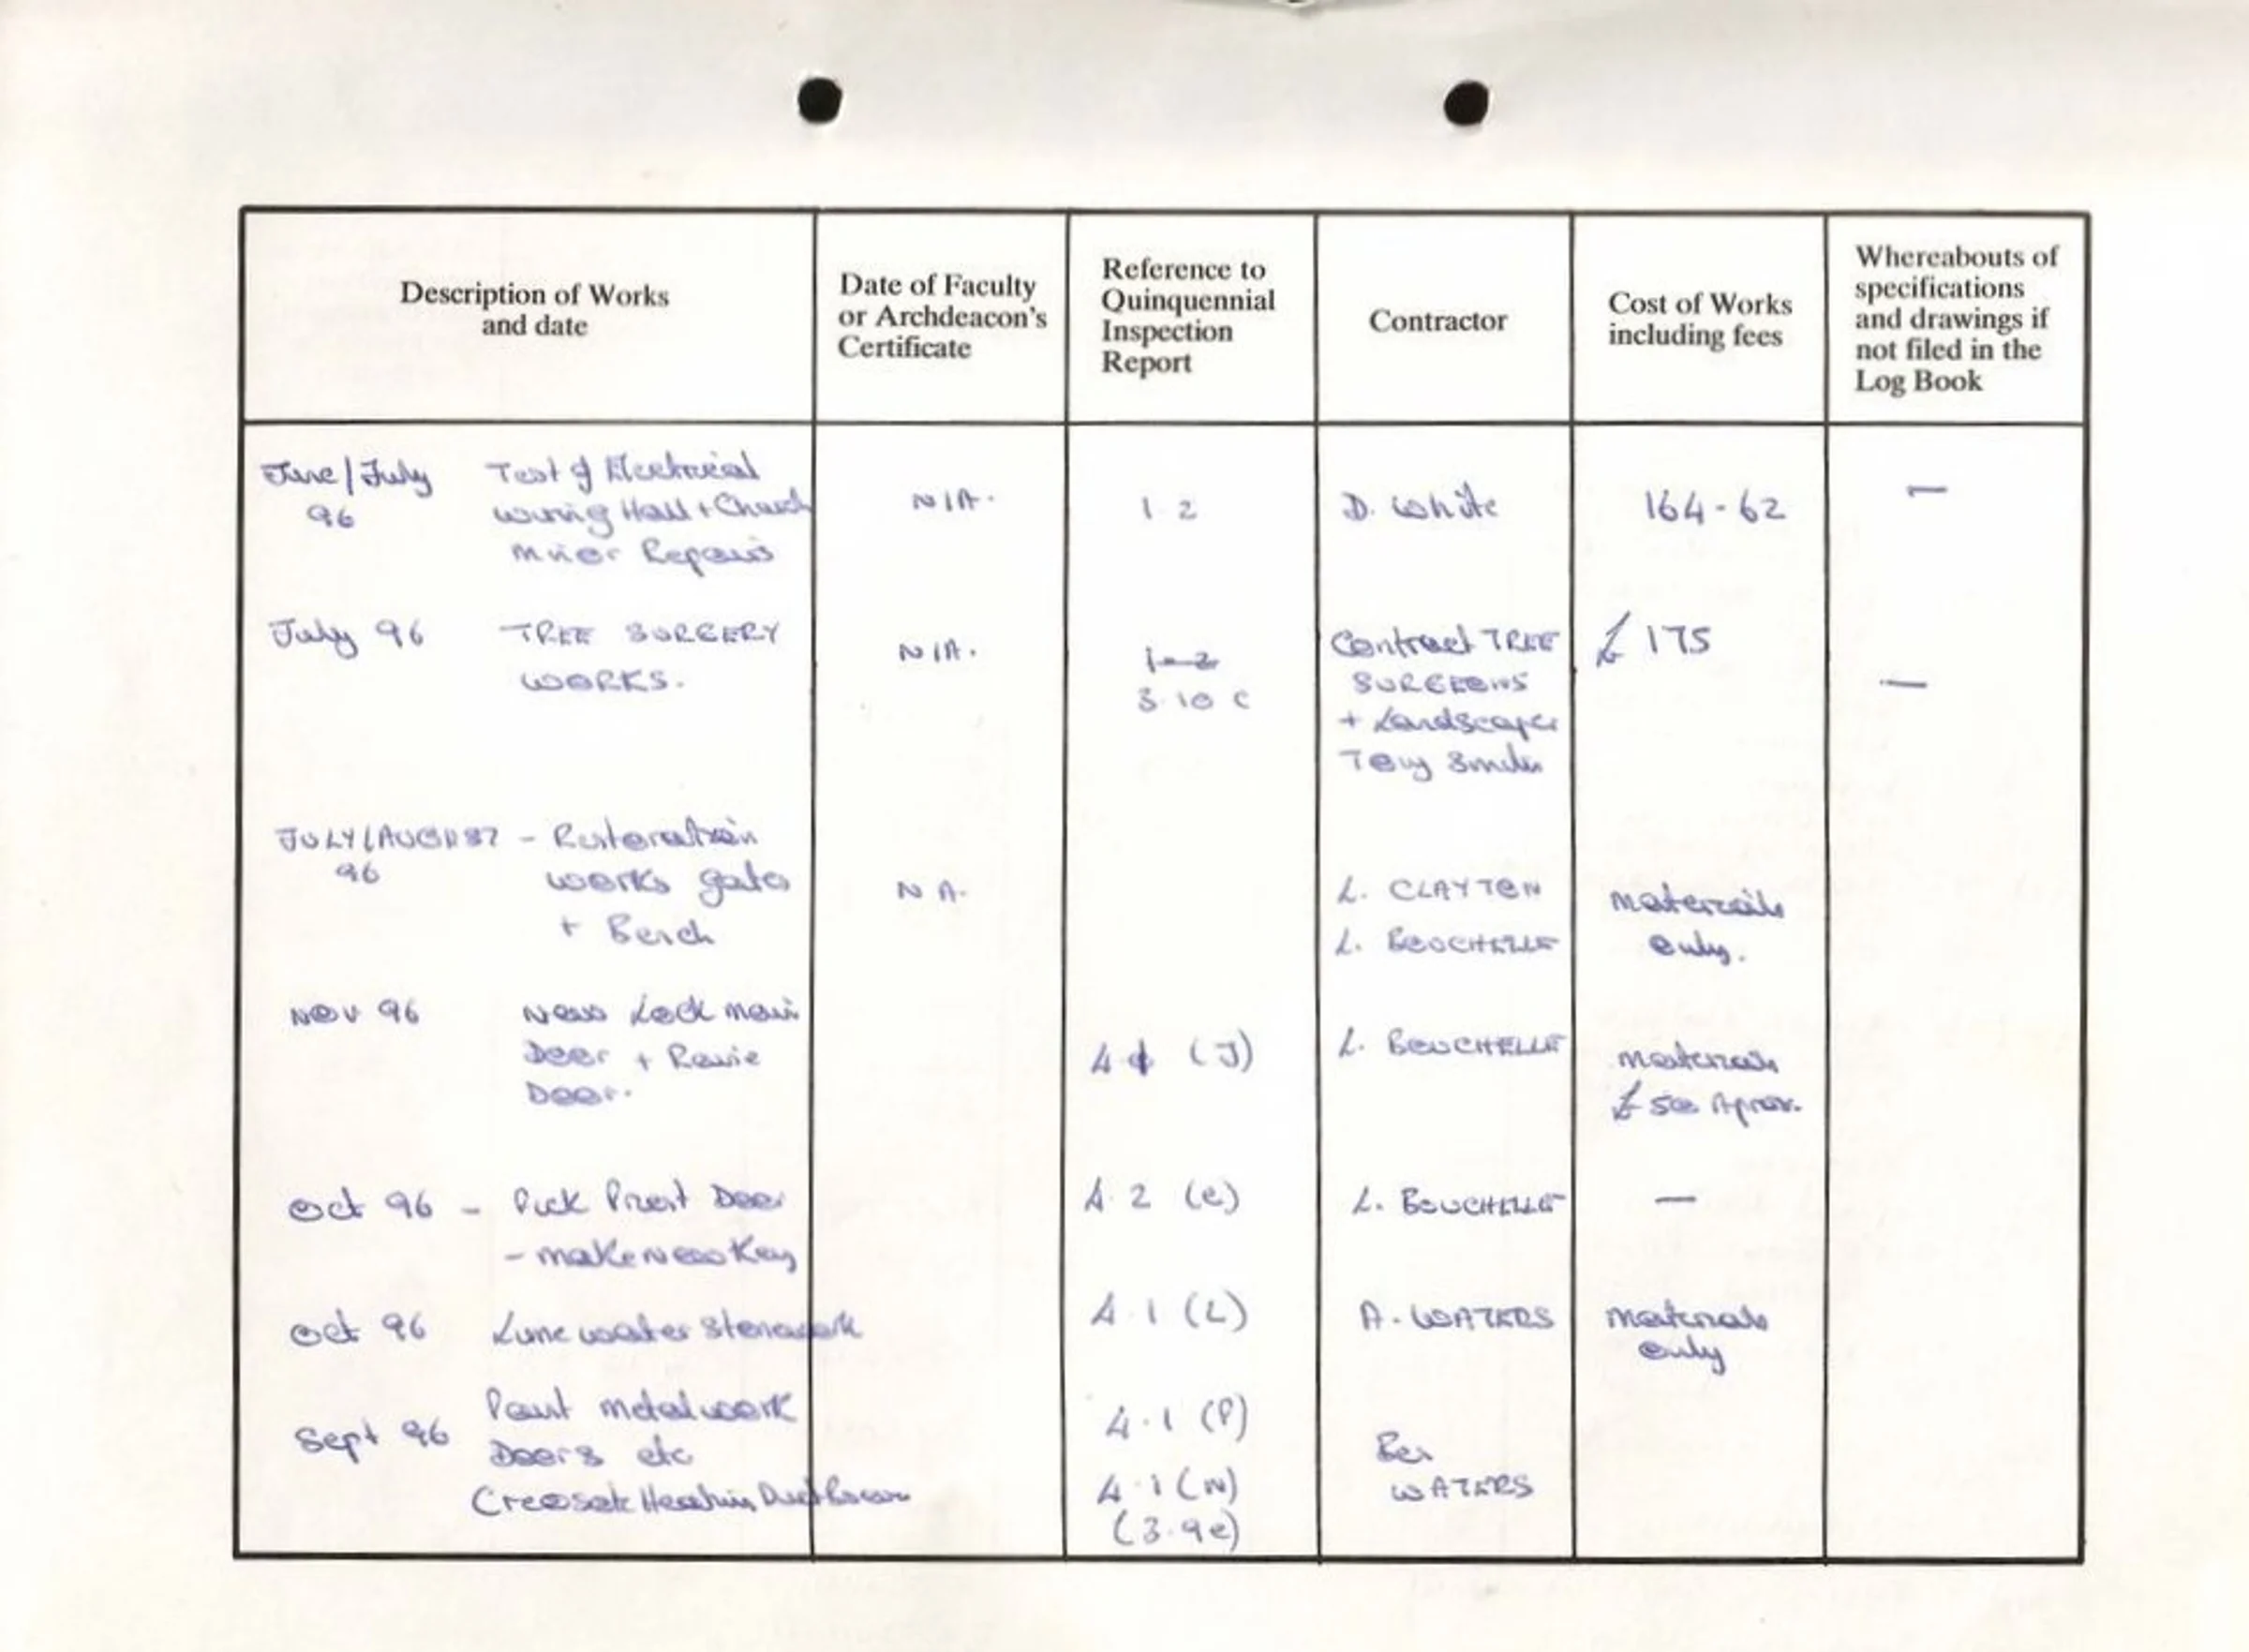 Description of Works
and date
Date of Faculty
or Archdeacon's
Certificate
Reference to
Quinquennial
Inspection
Report
Contractor
Cost of Works
including fees
Whereabouts of
specifications
and drawings if
not filed in the
Log Book
June/July
96
Test of Electrical
wiring Hall + Church
Minor Repairs
N/A.
1 2
D. White
164-62
—
July 96
TREE SURGERY
WORKS.
N/A.
1-2
3.10 C
Contract TREE
SURGEONS
+ Landscaper
Tony
£175
—
JULY/AUGUST
96
- Restoration
works gates
+ Bench
N A.
L. CLAYTON
L. BOUCHELLE
materials
only.
NOV 96
New Lock main
Door +
Door.
4 (J)
L. BOUCHELLE
materials
£50 Aprox.
Oct 96 -
Priest Door
- make New Key
4.2 (e)
L. BOUCHELLE
—
Oct 96
Lime water stonework
4.1 (L)
A. WATERS
materials
only
Sept 96
Paint metalwork
Doors etc
Creosote Duct
4.1 (P)
4.1 (N)
(3.9e)
WATERS